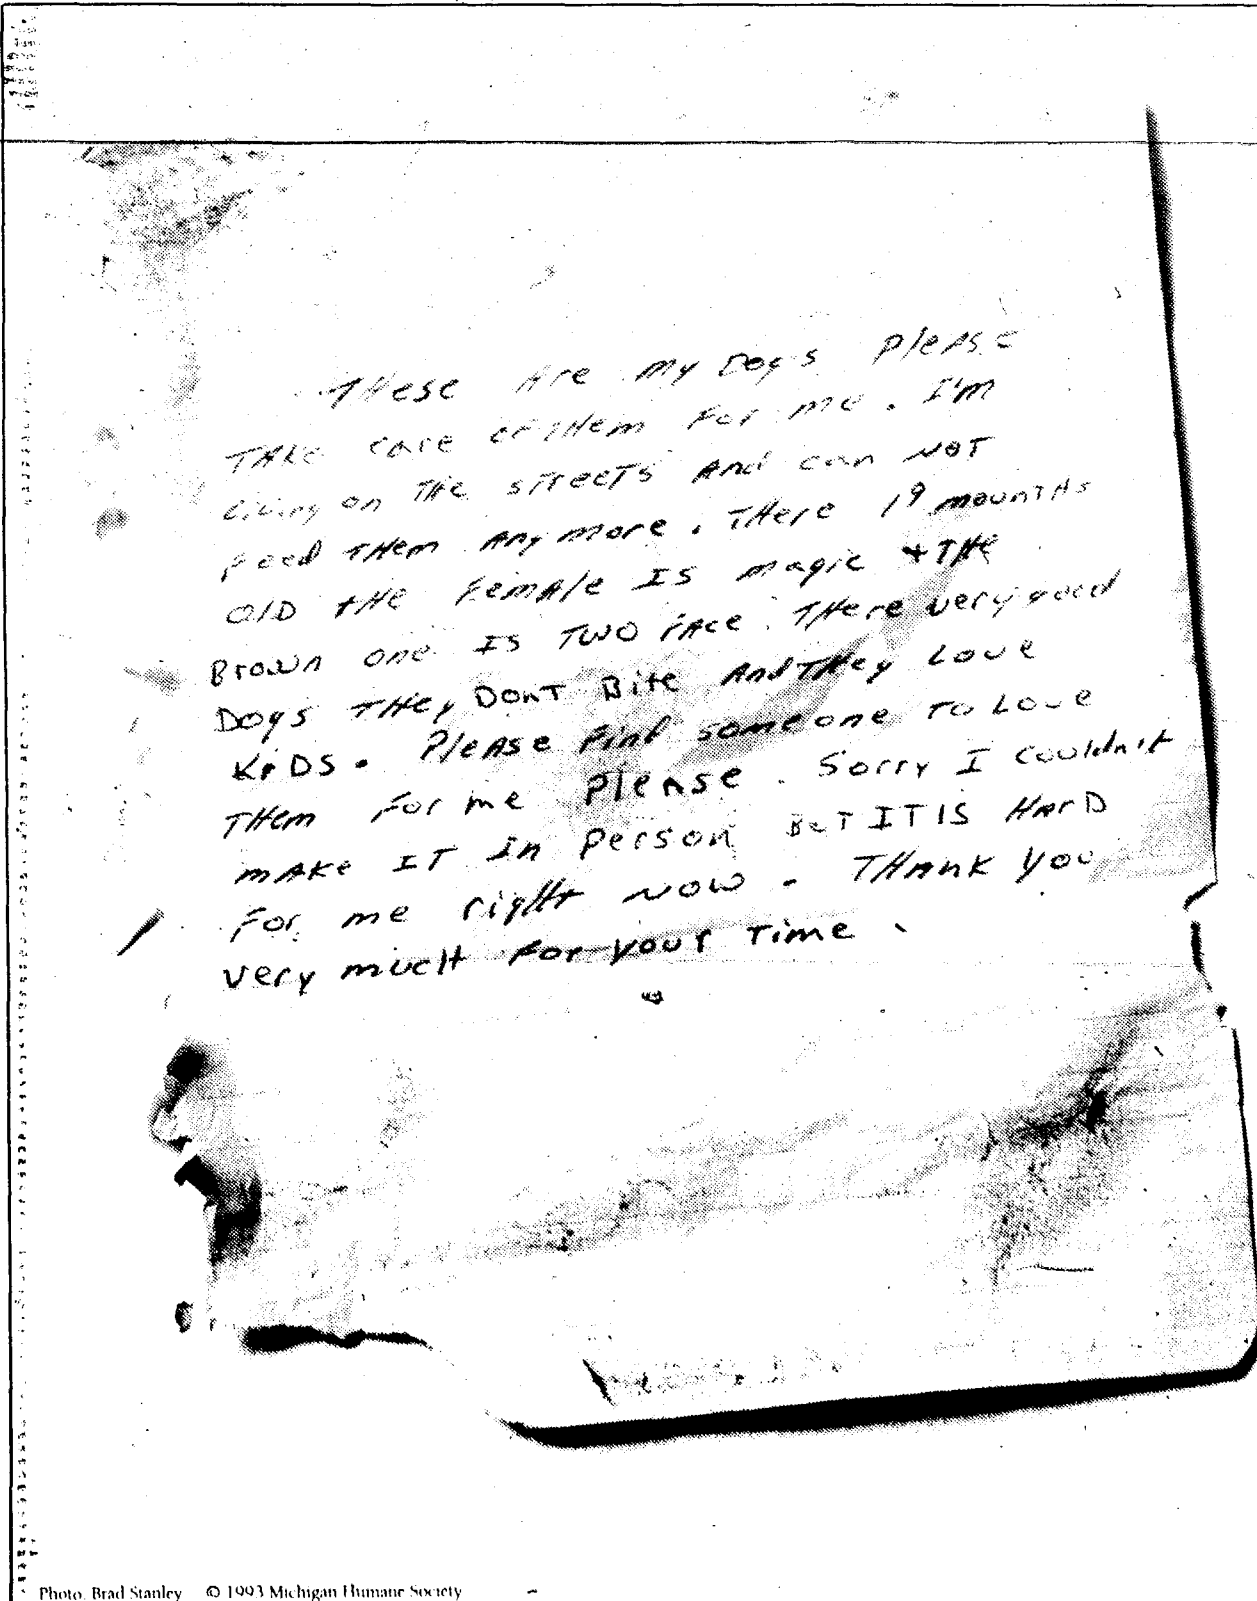 THese Are my Dogs Please
TAke care of THem For me. I'm
Living on THe streeTs And can NOT
feed THem Any more. THere 19 mounTHs
OlD tHe FemAle IS magic + THe
Brown one IS TWO FAce. THere very good
Dogs THey DonT Bite And THey Love
KiDS. PleAse Find someone To Love
THem For me PleAse. Sorry I couldn't
mAKe IT In Person BuT IT IS HArD
For me rigHt NOW. THAnk You
very mucH For your Time.
Photo, Brad Stanley © 1993 Michigan Humane Society